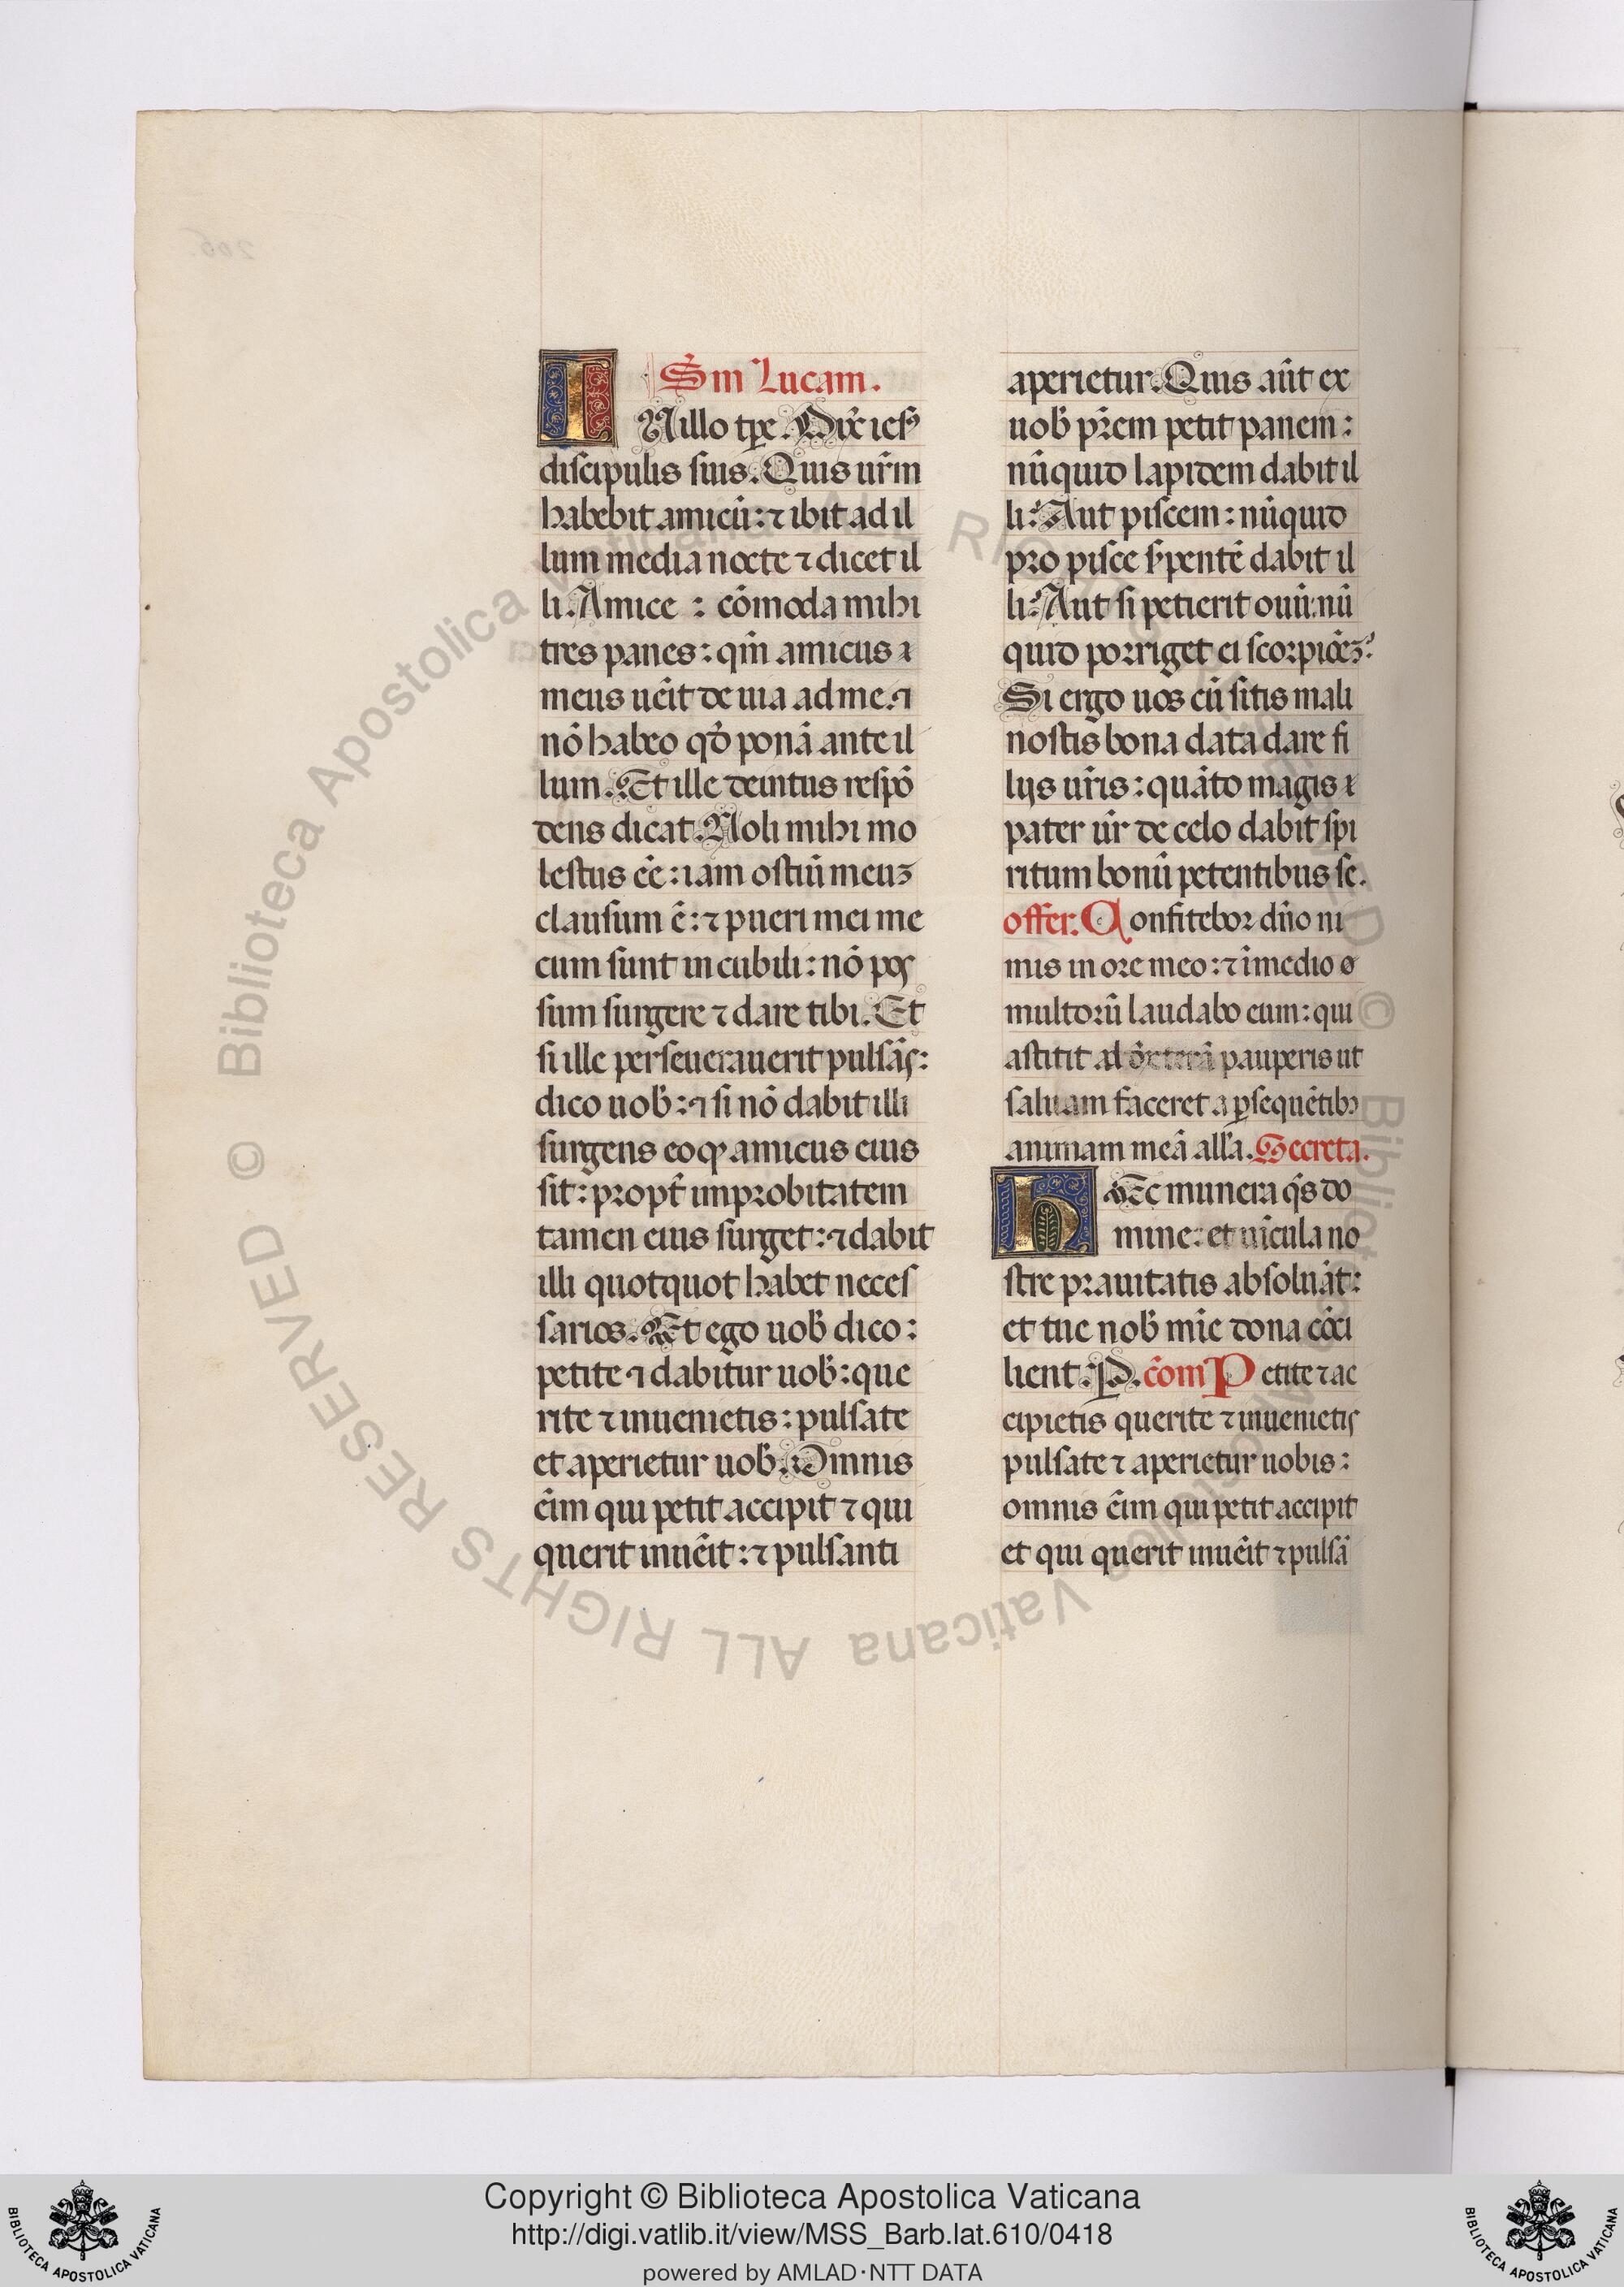 Sm̄ Lucam.
IN illo tp̄e. Dix̄ iesꝰ
discipulis suis. Quis ur̄m
habebit amicū: ⁊ ibit ad il
lum media nocte ⁊ dicet il
li. Amice : cōmoda mihi
tres panes: qm̄ amicus
meus uēit de uia ad me. ⁊
nō habeo qd̄ ponā ante il
lum. Et ille deintus respō
dens dicat. Noli mihi mo
lestus eē: iam ostiū meuꝫ
clausum ē: ⁊ pueri mei me
cum sunt in cubili: nō pos
sum surgere ⁊ dare tibi. Et
si ille perseuerauerit pulsās:
dico uob̄: ⁊ si nō dabit illi
surgens eoqꝫ amicus eius
sit: propt̄ improbitatem
tamen eius surget: ⁊ dabit
illi quotquot habet neces
sarios. Et ego uob̄ dico:
petite ⁊ dabitur uob̄: que
rite ⁊ inuenietis: pulsate
et aperietur uob̄. Omnis
ēim qui petit accipit ⁊ qui
querit inuēit: ⁊ pulsanti
aperietur. Quis aūt ex
uob̄ pr̄em petit panem:
nūquid lapidem dabit il
li? Aut piscem: nūquid
pro pisce s̄pentē dabit il
li? Aut si petierit ouū: nū
quid porriget ei scorpiōeꝫ?
Si ergo uos cū sitis mali
nostis bona data dare fi
lijs ur̄is: quāto magis
pater ur̄ de celo dabit spi
ritum bonū petentibus se.
offer. Confitebor dn̄o ni
mis in ore meo: ⁊ ī medio
multorū laudabo eum: qui
astitit ad dexterā pauperis ut
saluam faceret a ꝑsequētibꝫ
animam meā all̄a. Secreta.
HEc munera qs̄ do
mine: et uīcula no
stre prauitatis absoluāt:
et tue nob̄ mīe dona cōci
lient. P. cōm̄ Petite ⁊ ac
cipietis querite ⁊ inuenietis
pulsate ⁊ aperietur uobis:
omnis ēim qui petit accipit
et qui querit inuēit ⁊ pulsā
© Biblioteca Apostolica Vaticana ALL RIGHTS RESERVED
Copyright © Biblioteca Apostolica Vaticana
http://digi.vatlib.it/view/MSS_Barb.lat.610/0418
powered by AMLAD·NTT DATA
BIBLIOTECA APOSTOLICA VATICANA
BIBLIOTECA APOSTOLICA VATICANA